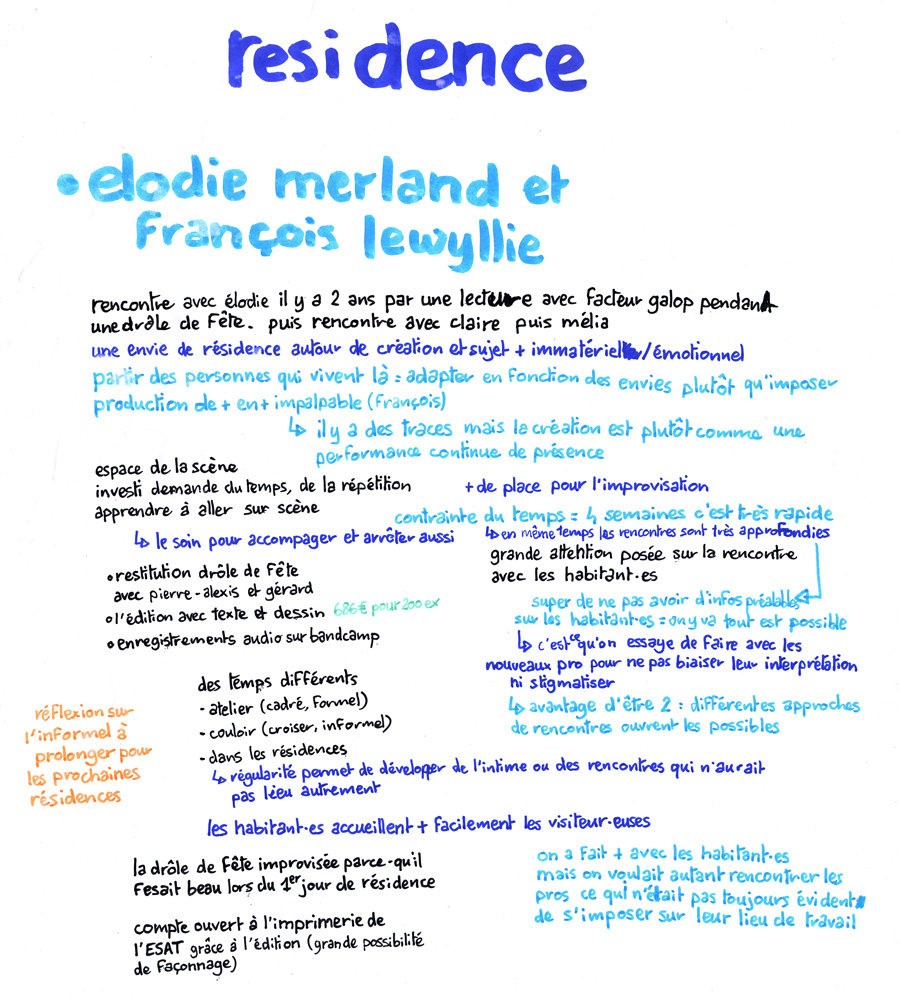 residence
• elodie merland et
françois lewyllie
rencontre avec élodie il y a 2 ans par une lecture avec facteur galop pendant
une drôle de fête. puis rencontre avec claire puis mélia
une envie de résidence autour de création et sujet + immatériel/émotionnel
partir des personnes qui vivent là = adapter en fonction des envies plutôt qu'imposer
production de + en + impalpable (françois)
↳ il y a des traces mais la création est plutôt comme une
performance continue de présence
espace de la scène
investi demande du temps, de la répétition
apprendre à aller sur scène
+ de place pour l'improvisation
contrainte du temps = 4 semaines c'est très rapide
↳ le soin pour accompager et arrêter aussi
↳ en même temps les rencontres sont très approfondies
grande attention posée sur la rencontre
avec les habitant·es
• restitution drôle de fête
avec pierre-alexis et gérard
• l'édition avec texte et dessin 686€ pour 200 ex
• enregistrements audio sur bandcamp
super de ne pas avoir d'infos préalables
sur les habitant·es = on y va tout est possible
↳ c'est ce qu'on essaye de faire avec les
nouveaux pro pour ne pas biaiser leur interprétation
ni stigmatiser
↳ avantage d'être 2 : différentes approches
de rencontres ouvrent les possibles
des temps différents
- atelier (cadré, formel)
- couloir (croiser, informel)
- dans les résidences
↳ régularité permet de développer de l'intime ou des rencontres qui n'aurait
pas lieu autrement
réflexion sur
l'informel à
prolonger pour
les prochaines
résidences
les habitant·es accueillent + facilement les visiteur·euses
la drôle de fête improvisée parce-qu'il
fesait beau lors du 1er jour de résidence
compte ouvert à l'imprimerie de
l'ESAT grâce à l'édition (grande possibilité
de façonnage)
on a fait + avec les habitant·es
mais on voulait autant rencontrer les
pros ce qui n'était pas toujours évident
de s'imposer sur leur lieu de travail